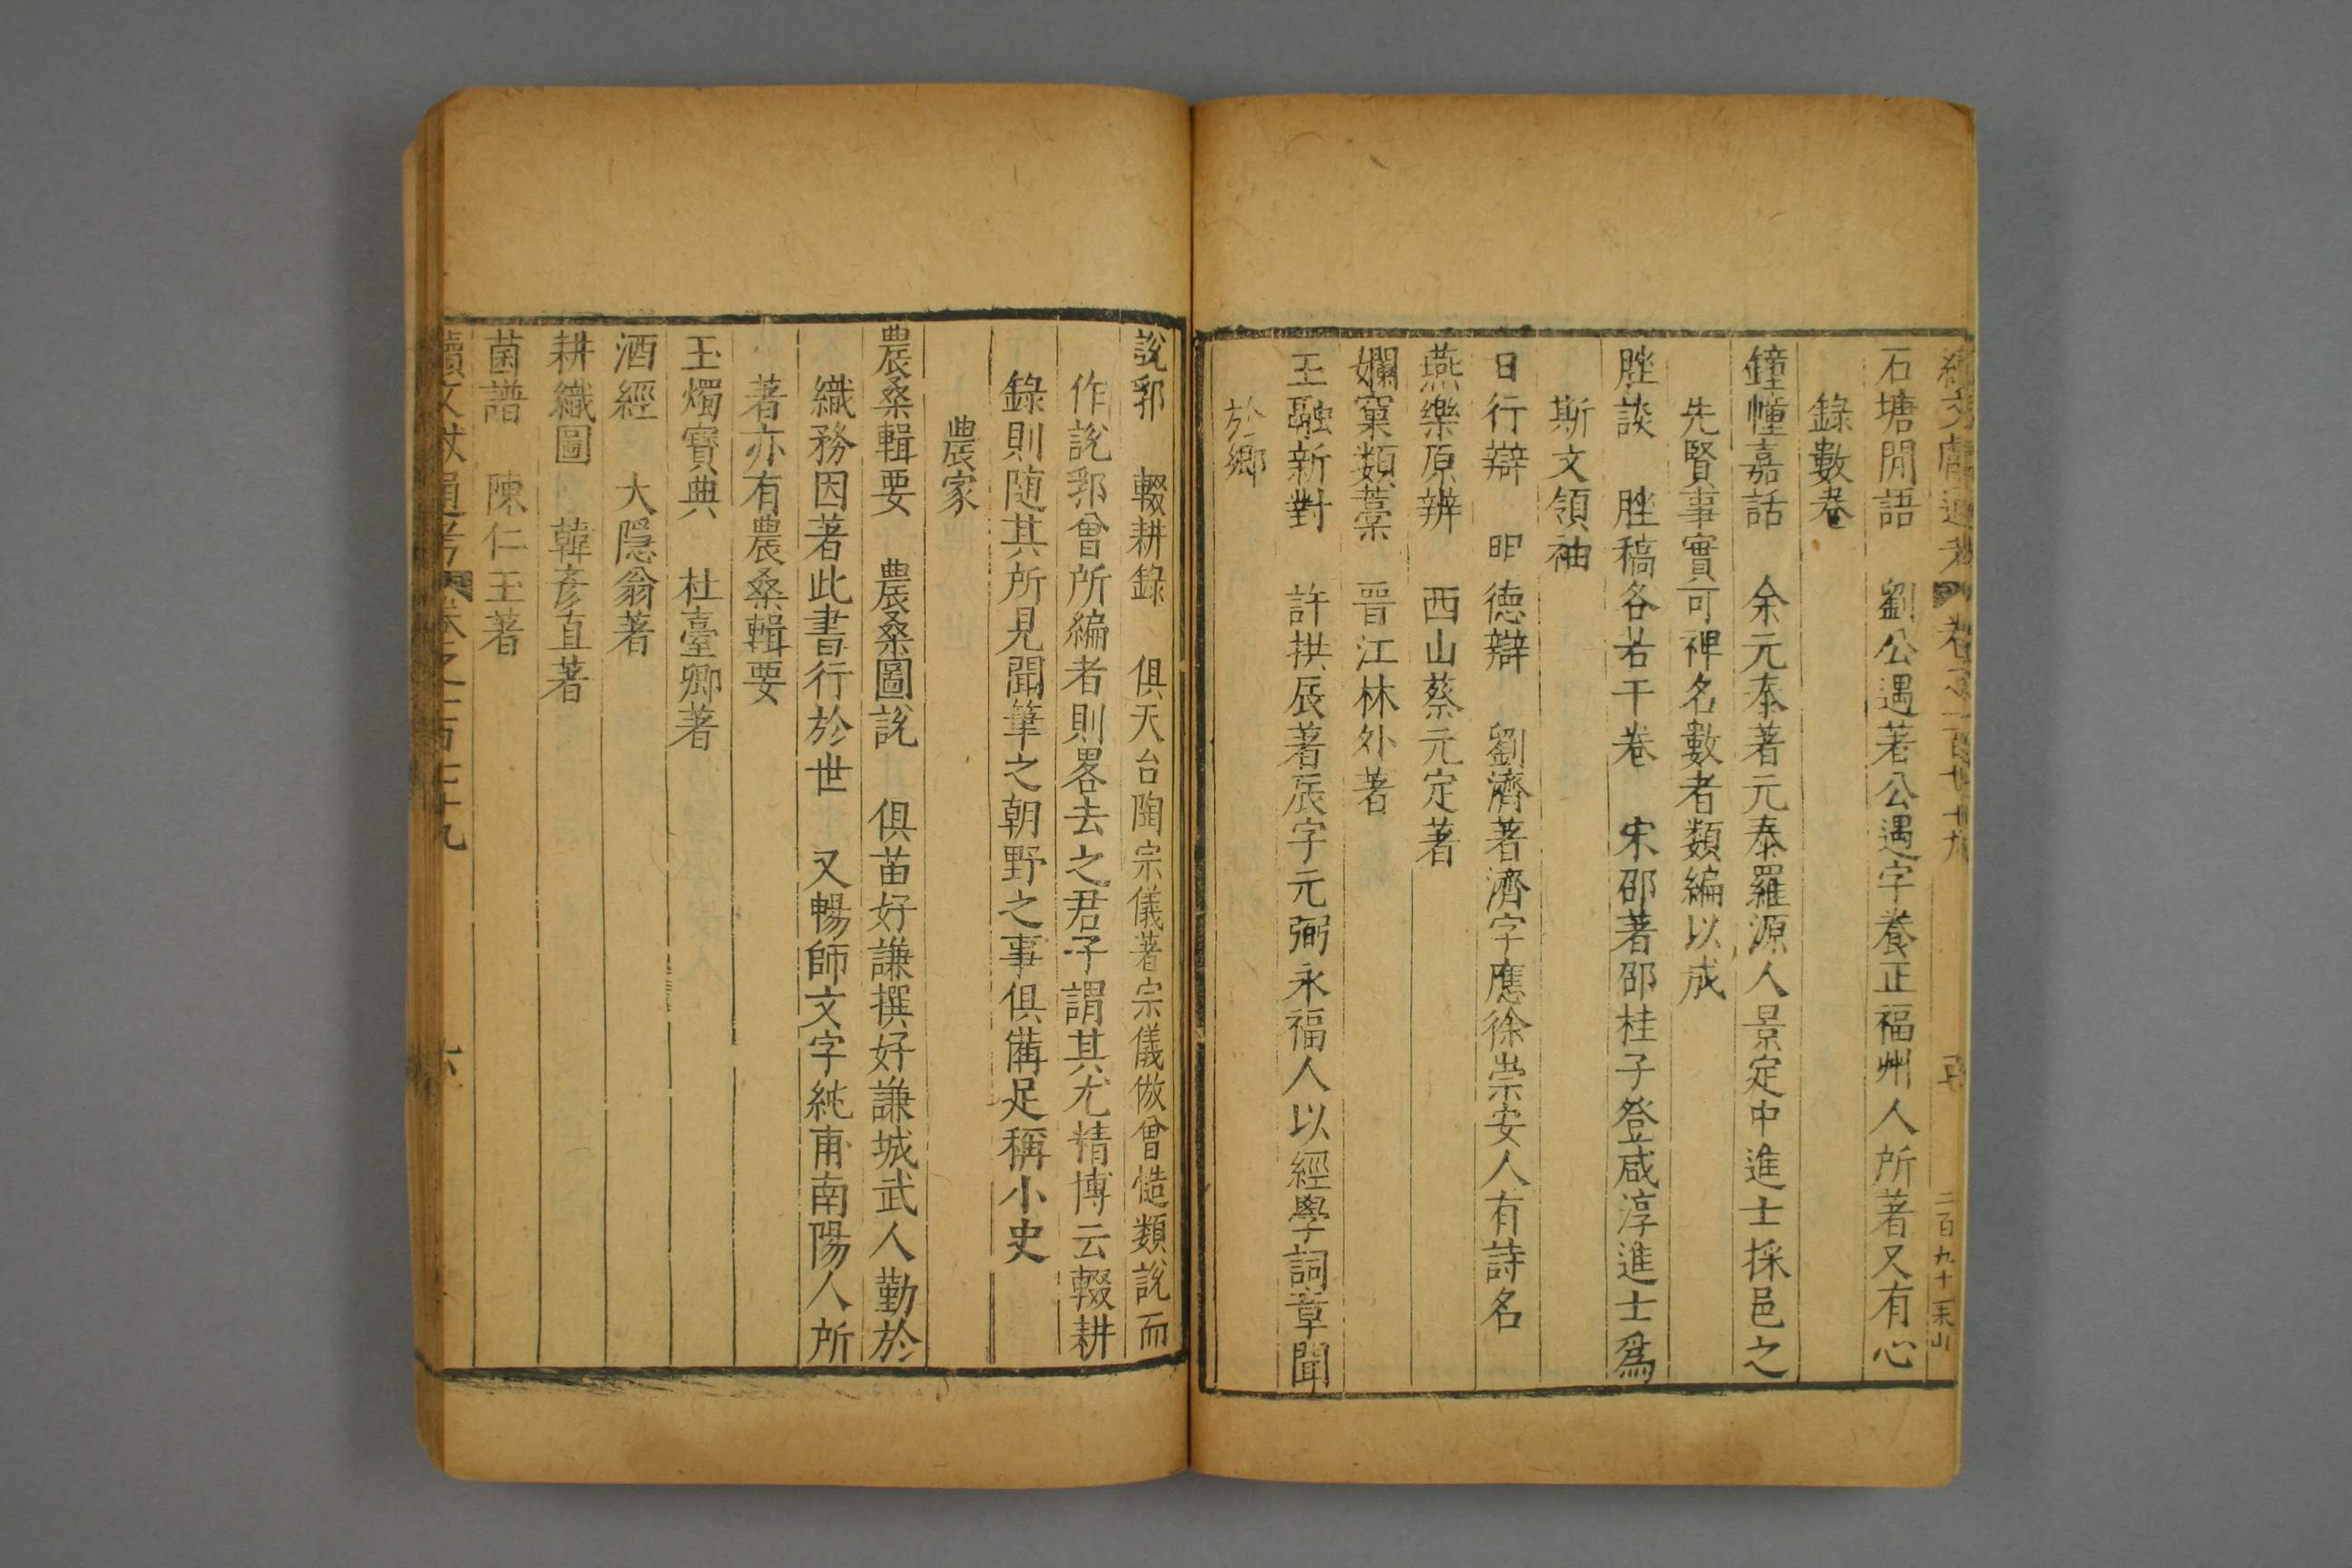 石塘閒語　劉公遇著公遇字養正福州人所著又有心
錄數卷
鐘幢嘉話　余元泰著元泰羅源人景定中進士採邑之
先賢事實可裨名數者類編以成
脞談　脞稿各若干卷　宋邵著邵桂子登咸淳進士爲
斯文領袖
日行辯　明德辯　劉濟著濟字應徐崇安人有詩名
燕樂原辨　西山蔡元定著
嬾窠類藁　晉江林外著
王融新對　許拱辰著辰字元弼永福人以經學詞章聞
於鄉
說郛　輟耕錄　俱天台陶宗儀著宗儀倣曾慥類說而
作說郛曾所編者則畧去之君子謂其尤精博云輟耕
錄則随其所見聞筆之朝野之事俱備足稱小史
農家
農桑輯要　農桑圖說　俱苗好謙撰好謙城武人勤於
織務因著此書行於世　又暢師文字純甫南陽人所
著亦有農桑輯要
玉燭寶典　杜臺卿著
酒經　大隱翁著
耕織圖　韓彥直著
菌譜　陳仁玉著
續文獻通考　卷之一百七十九　六